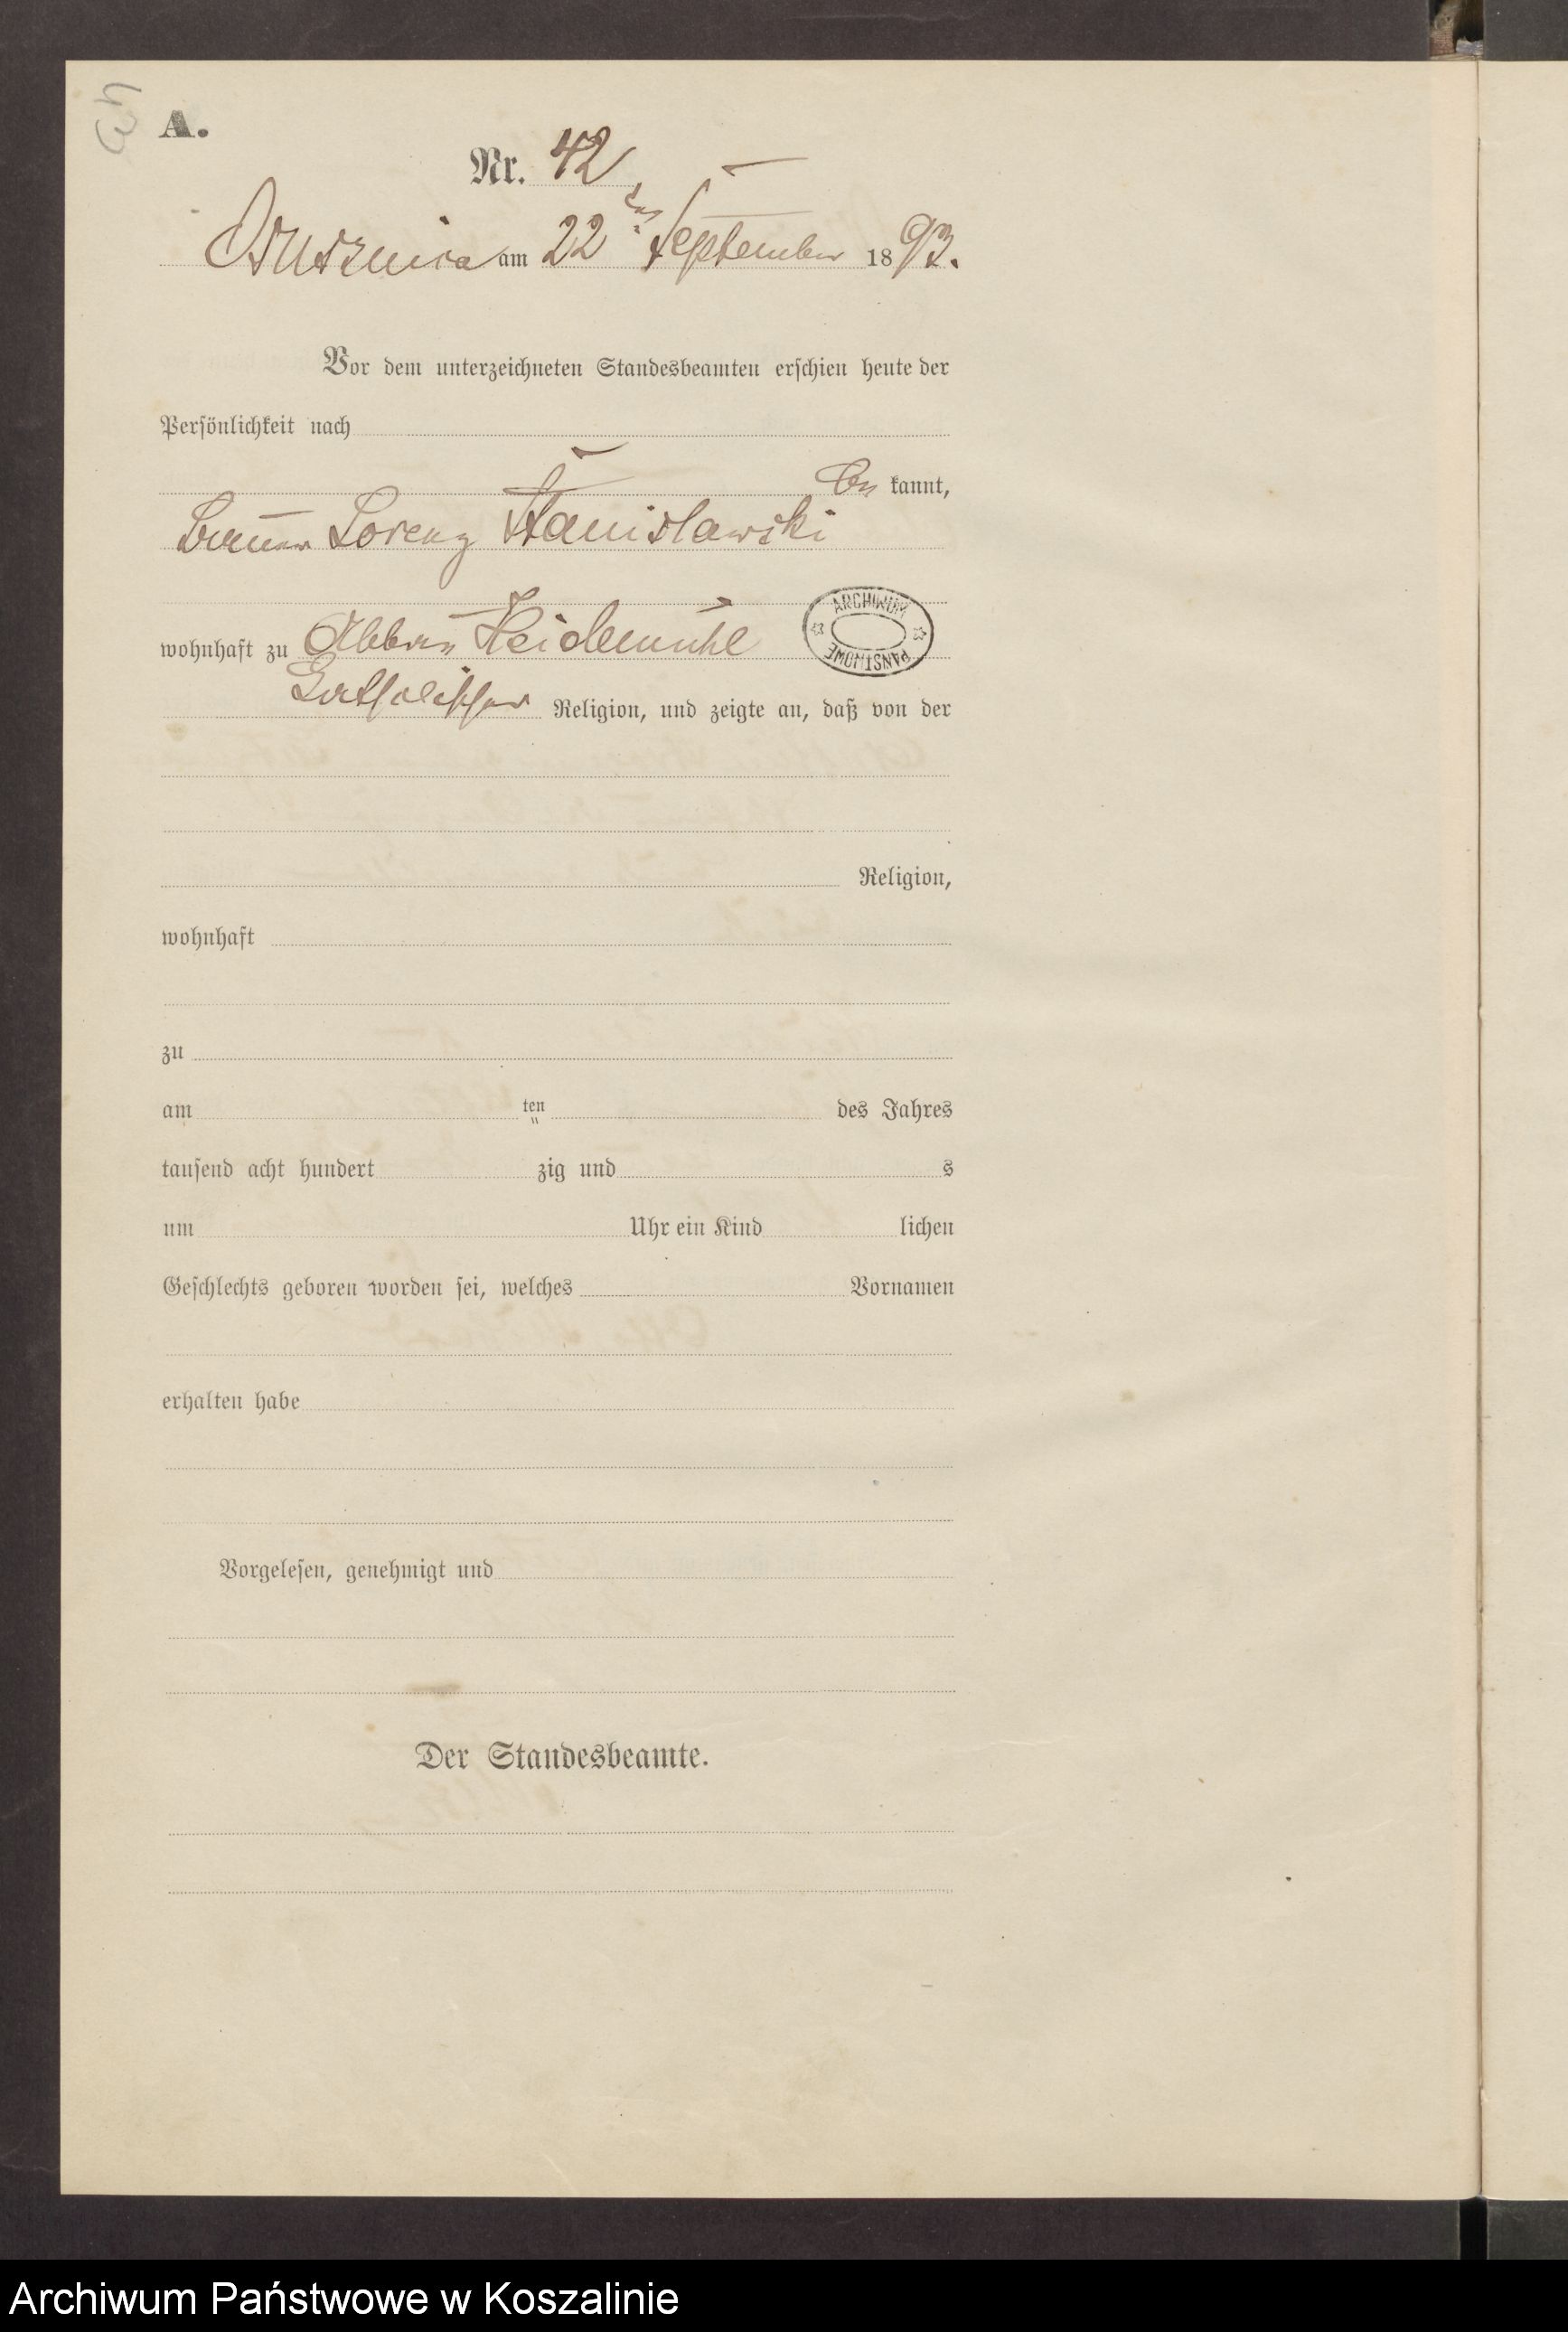 43
A.
Nr. 42
Ostuszniza am 22ten September 1893.
Vor dem unterzeichneten Standesbeamten erschien heute der
Persönlichkeit nach
be kannt,
Bauer Lorenz Stanislawski
wohnhaft zu Abbau Heidemühl
ARCHIWUM PAŃSTWOWE
katholischer Religion, und zeigte an, daß von der
Religion,
wohnhaft
zu
am ten des Jahres
tausend acht hundert zig und s
um Uhr ein Kind lichen
Geschlechts geboren worden sei, welches Vornamen
erhalten habe
Vorgelesen, genehmigt und
Der Standesbeamte.
Archiwum Państwowe w Koszalinie